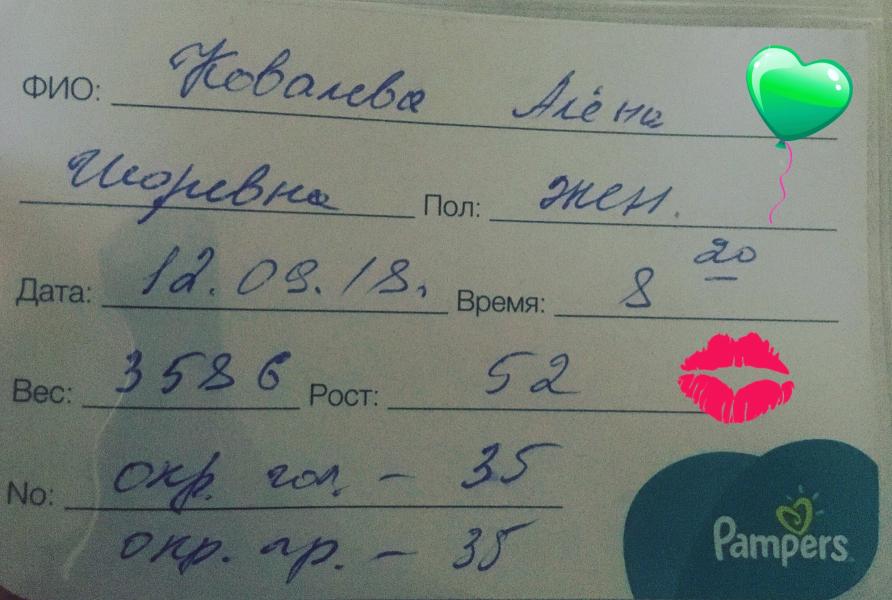 ФИО: Ковалева Алёна
Игоревна Пол: жен.
Дата: 12.09.18г. Время: 8 20
Вес: 3586 Рост: 52
No: окр. гол. - 35
окр. гр. - 35
Pampers